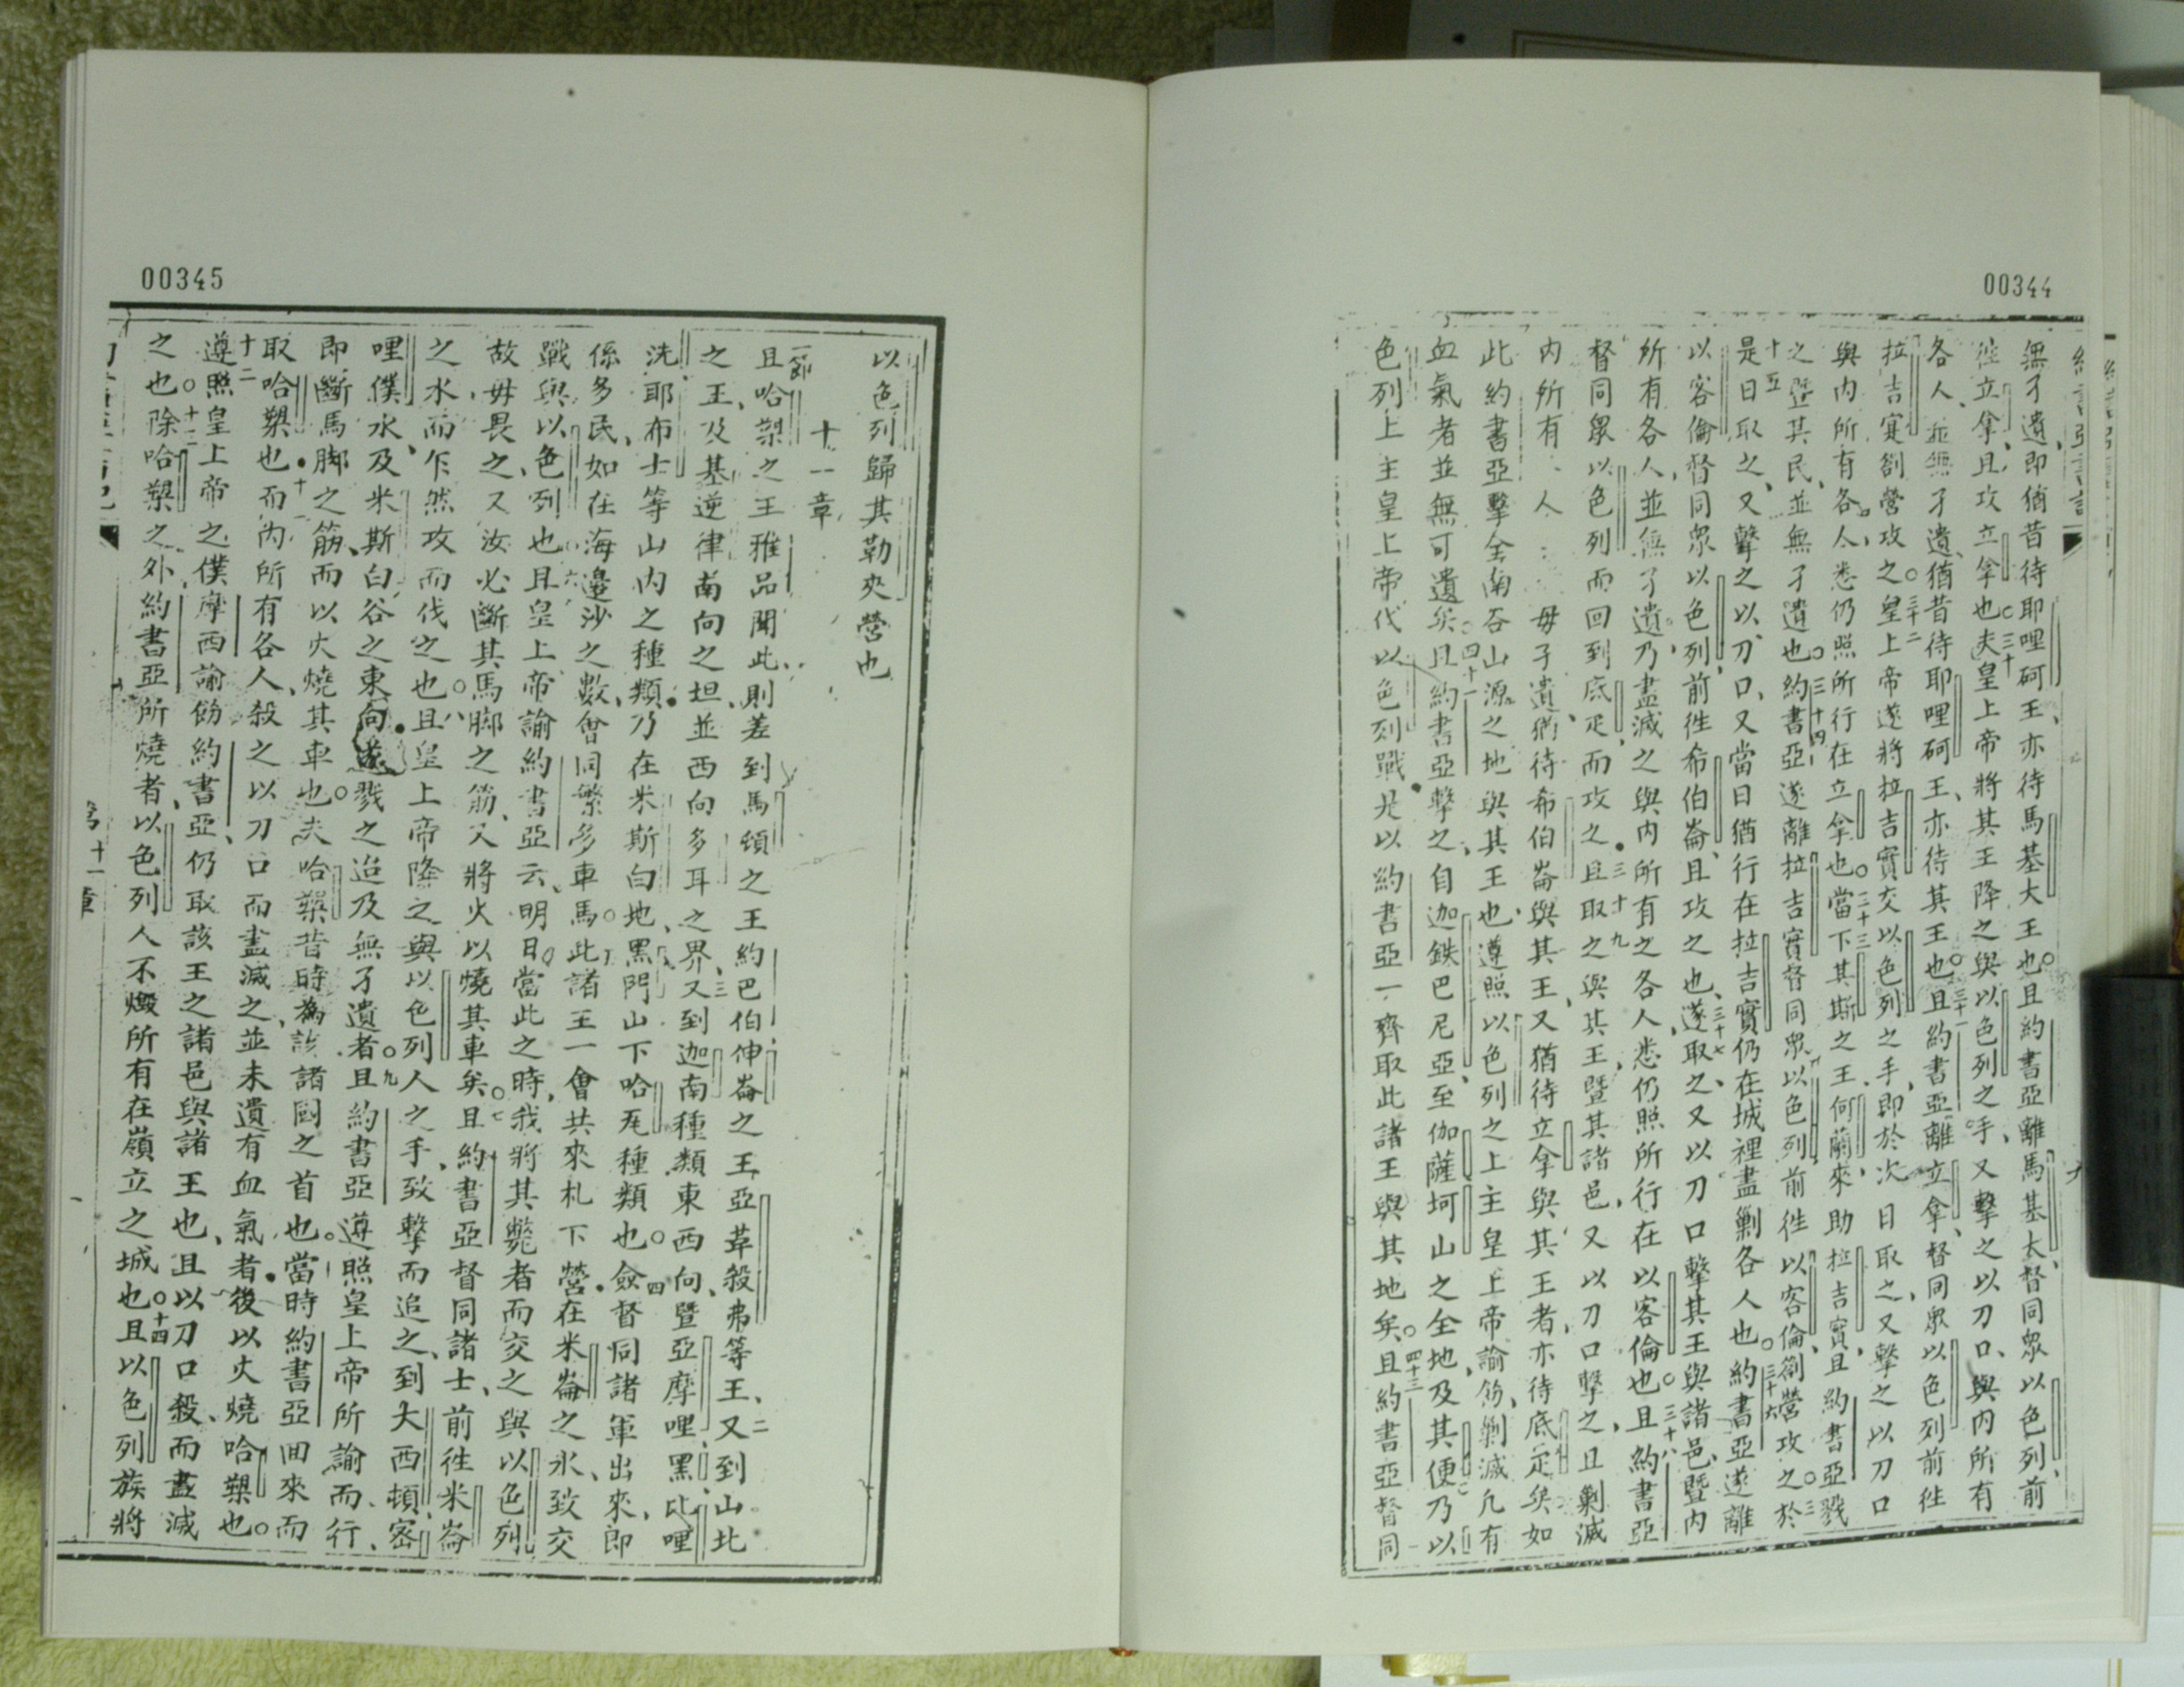 00344
無孑遺即猶昔待耶哩砢王亦待馬基大王也且約書亞離馬基大督同眾以色列前
徃立拿且攻立拿也三十夫皇上帝將其王降之與以色列之手又擊之以刀口與内所有
各人並無孑遺猶昔待耶哩砢王亦待其王也三十一且約書亞離立拿督同眾以色列前徃
拉吉寔劄營攻之三十二皇上帝遂將拉吉實交以色列之手即於次日取之又擊之以刀口
與内所有各人悉仍照所行在立拿也三十三當下其斯之王何繭來助拉吉實且約書亞戮
之暨其民並無孑遺也三十四約書亞遂離拉吉實督同眾以色列前徃以客倫劄營攻之三十五於
是日取之又擊之以刀口又當日猶行在拉吉實仍在城裡盡剿各人也三十六約書亞遂離
以客倫督同眾以色列前徃希伯崙且攻之也三十七遂取之又以刀口擊其王與諸邑暨内
所有各人並無孑遺乃盡滅之與内所有之各人悉仍照所行在以客倫也三十八且約書亞
督同眾以色列而回到底疋而攻之三十九且取之與其王暨其諸邑又以刀口擊之且剿滅
内所有人毋孑遺猶待希伯崙與其王又猶待立拿與其王者亦待底疋矣如
此約書亞擊全南谷山源之地與其王也遵照以色列之上主皇上帝諭飭剿滅凡有
血氣者並無可遺矣四十一且約書亞擊之自迦鉄巴尼亞至伽薩坷山之全地及其便乃以
色列上主皇上帝代以色列戰是以約書亞一齊取此諸王與其地矣四十三且約書亞督同
00345
以色列歸其勒夾營也
十一章
一節且哈槊之王雅品聞此則差到馬頓之王約巴伯伸崙之王亞革殺弗等王二又到山北
之王及基逆律南向之坦並西向多耳之界三又到迦南種類東西向暨亞摩哩黑比哩
洗耶布士等山内之種類乃在米斯白地黑門山下哈㡯種類也四僉督同諸軍出來即
係多民如在海邊沙之數會同繁多車馬五此諸王一會共來札下營在米崙之水致交
戰與以色列也六且皇上帝諭約書亞云明日當此之時我將其斃者而交之與以色列
故毋畏之又汝必斷其馬脚之筋又將火以燒其車矣七且約書亞督同諸士前徃米崙
之水而乍然攻而伐之也八且皇上帝降之與以色列人之手致擊而追之到大西頓密
哩僕水及米斯白谷之東向遂戮之迨及無孑遺者九且約書亞遵照皇上帝所諭而行
即斷馬脚之筋而以火燒其車也十夫哈槊昔時為該諸國之首也當時約書亞回來而
取哈槊也十一而内所有各人殺之以刀口而盡滅之並未遺有血氣者後以火燒哈槊也
十二遵照皇上帝之僕摩西諭飭約書亞仍取該王之諸邑與諸王也且以刀口殺而盡滅
之也十三除哈槊之外約書亞所燒者以色列人不燬所有在嶺立之城也十四且以色列族將
第十一章